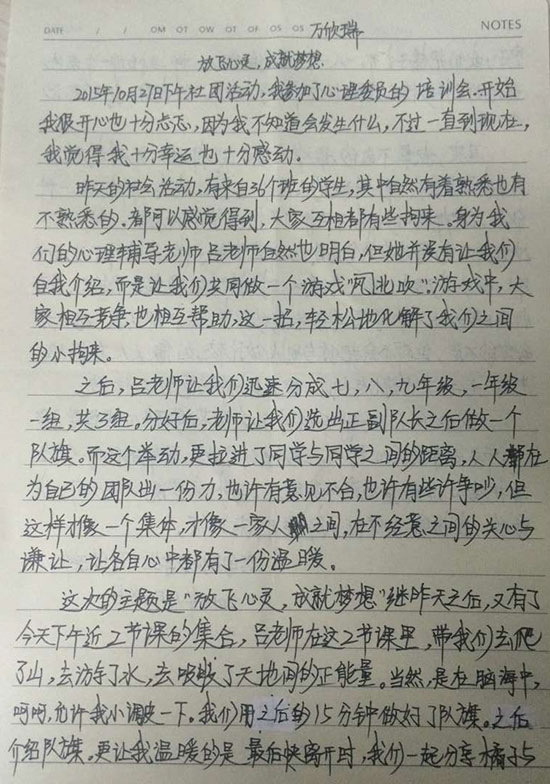 DATE / / OM OT OW OT OF OS OS 万欣瑞 NOTES
放飞心灵,成就梦想
2015年10月27日下午社团活动,我参加了心理委员的培训会.开始
我很开心也十分忐忑,因为我不知道会发生什么,不过一直到现在,
我觉得我十分幸运也十分感动.
昨天的社会活动,有来自36个班的学生,其中自然有着熟悉也有
不熟悉的.都可以感觉得到,大家互相都有些拘束.身为我
们的心理辅导老师吕老师自然也明白,但她并没有让我们
自我介绍,而是让我们共同做一个游戏"风北吹".游戏中,大
家相互竞争也相互帮助,这一招,轻松地化解了我们之间
的小拘束.
之后,吕老师让我们迅速分成七,八,九年级,一年级
一组,共3组.分好后,老师让我们选出正副队长之后做一个
队旗。而这个举动,更拉进了同学与同学之间的距离,人人都在
为自己的团队出一份力,也许有意见不合,也许有些许争吵,但
这样才像一个集体,才像一家人之间,在不经意之间的关心与
谦让,让各自心中都有了一份温暖。
这次的主题是"放飞心灵,成就梦想"继昨天之后,又有了
今天下午近2节课的集合,吕老师在这2节课里,带我们去爬
了山,去游了水,去吸收了天地间的正能量。当然,是在脑海中,
呵呵,允许我小调皮一下。我们用之后的15分钟做好了队旗.之后
介绍队旗.更让我温暖的是最后快离开时,我们一起分享橘子与